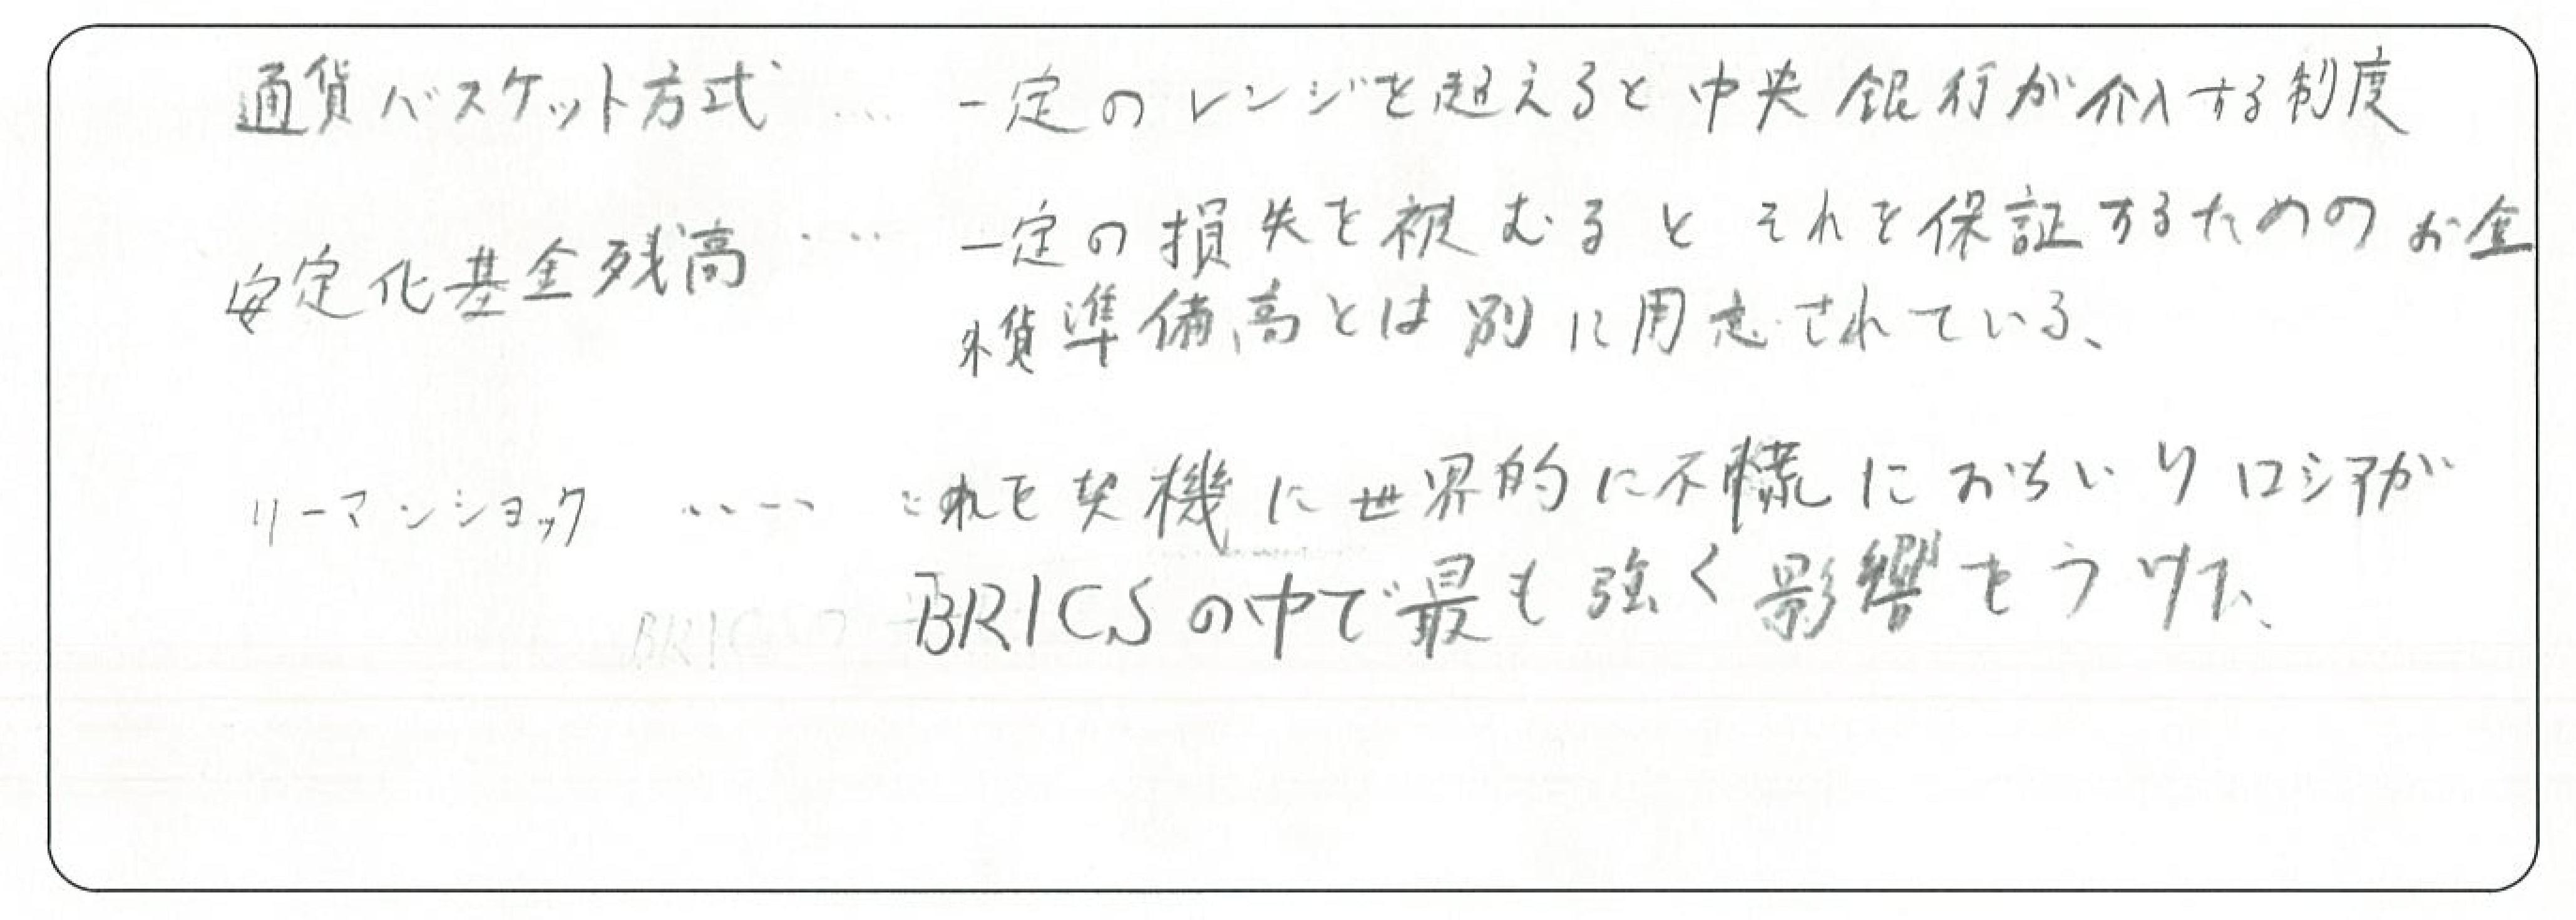 通貨バスケット方式 … 一定のレンジを超えると中央銀行が介入する制度
安定化基金残高 …. 一定の損失を被むるとそれを保証するためのお金
外貨準備高とは別に用意されている、
リーマンショック ‥‥ これを契機に世界的に不慌におちいりロシアが
BRICSの中で最も強く影響をうけた、